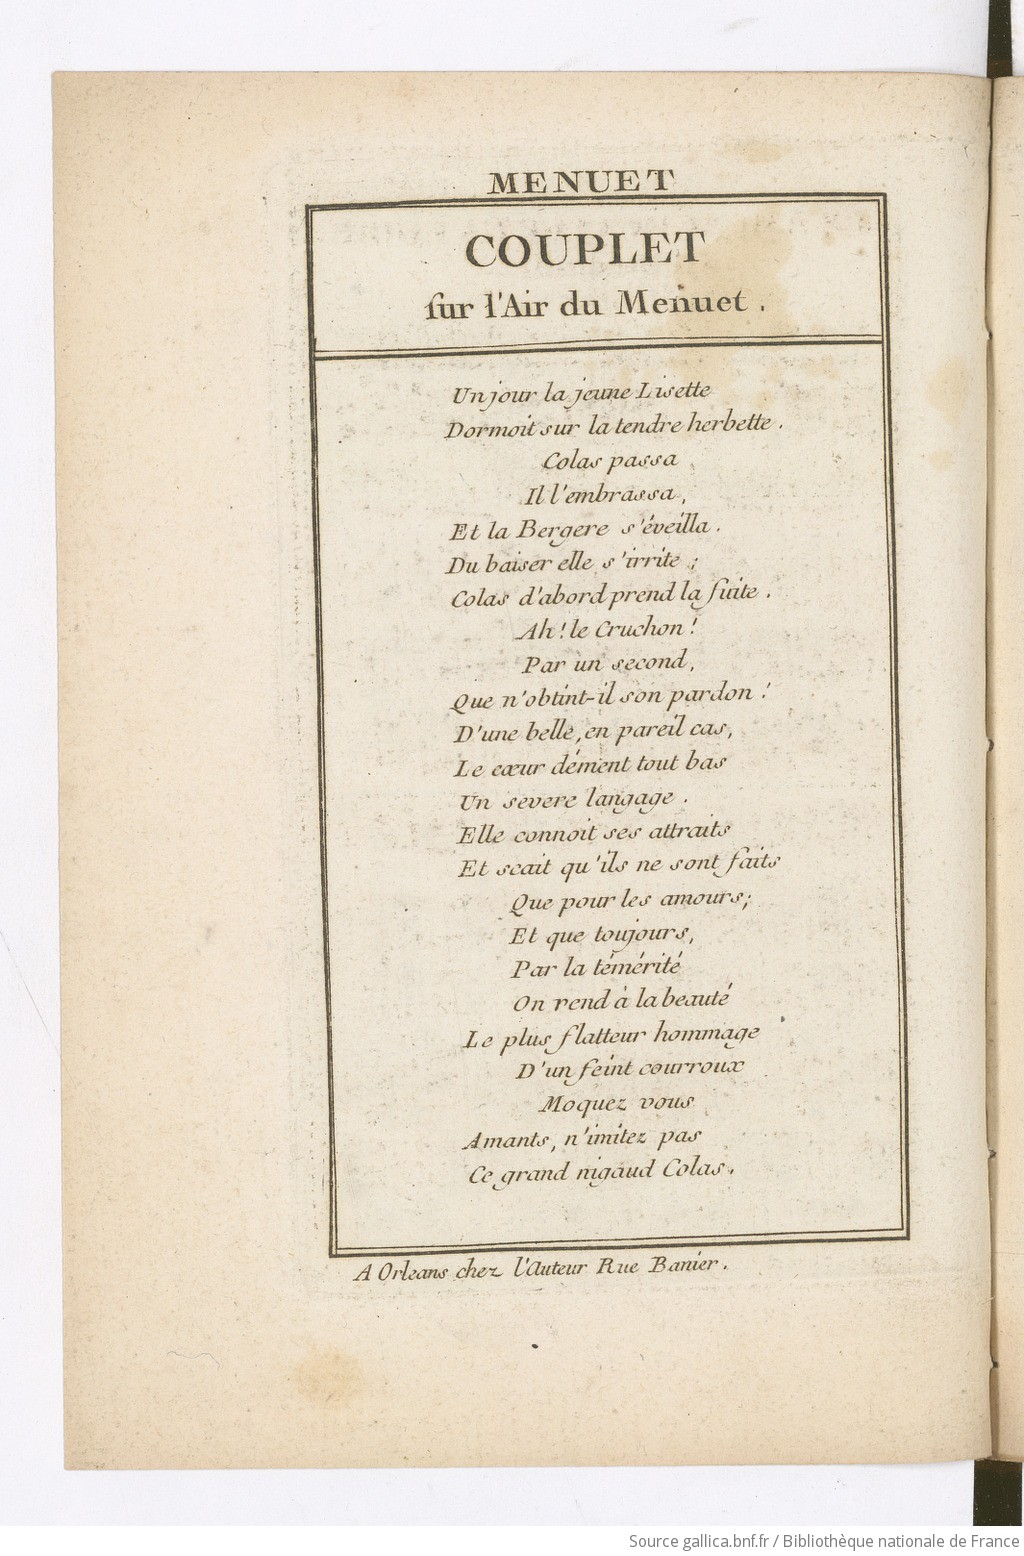 MENUET
COUPLET
sur l'Air du Menuet.
Un jour la jeune Lisette
Dormoit sur la tendre herbette.
Colas passa
Il l'embrassa,
Et la Bergere s'éveilla.
Du baiser elle s'irrite;
Colas d'abord prend la fuite.
Ah! le Cruchon!
Par un second,
Que n'obtint-il son pardon!
D'une belle, en pareil cas,
Le cœur dément tout bas
Un severe langage.
Elle connoit ses attraits
Et scait qu'ils ne sont faits
Que pour les amours;
Et que toujours,
Par la témérité
On rend à la beauté
Le plus flatteur hommage
D'un feint courroux
Moquez vous
Amants, n'imitez pas
Ce grand nigaud Colas.
A Orleans chez l'Auteur Rue Banier.
Source gallica.bnf.fr / Bibliothèque nationale de France